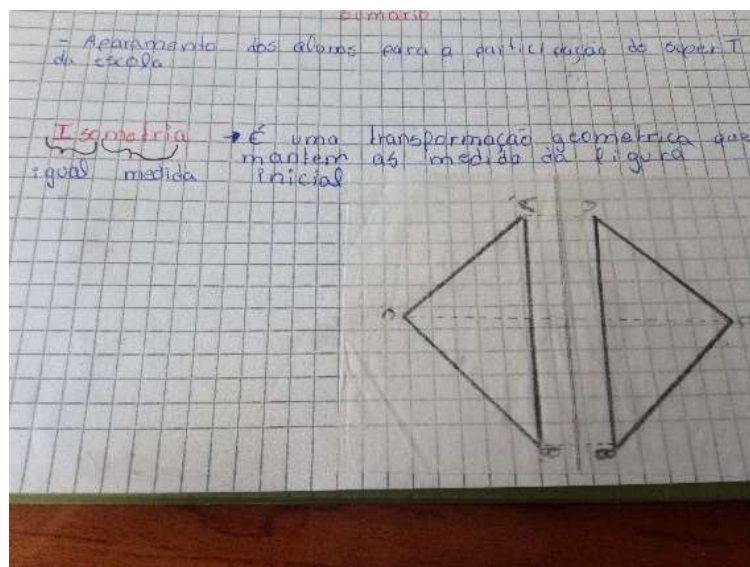 sumario
- Aparamento dos alunos para a participação do super T
da escola
Isometria → É uma transformação geometrica que
igual medida mantem as medida da figura
inicial
A
C
B
B